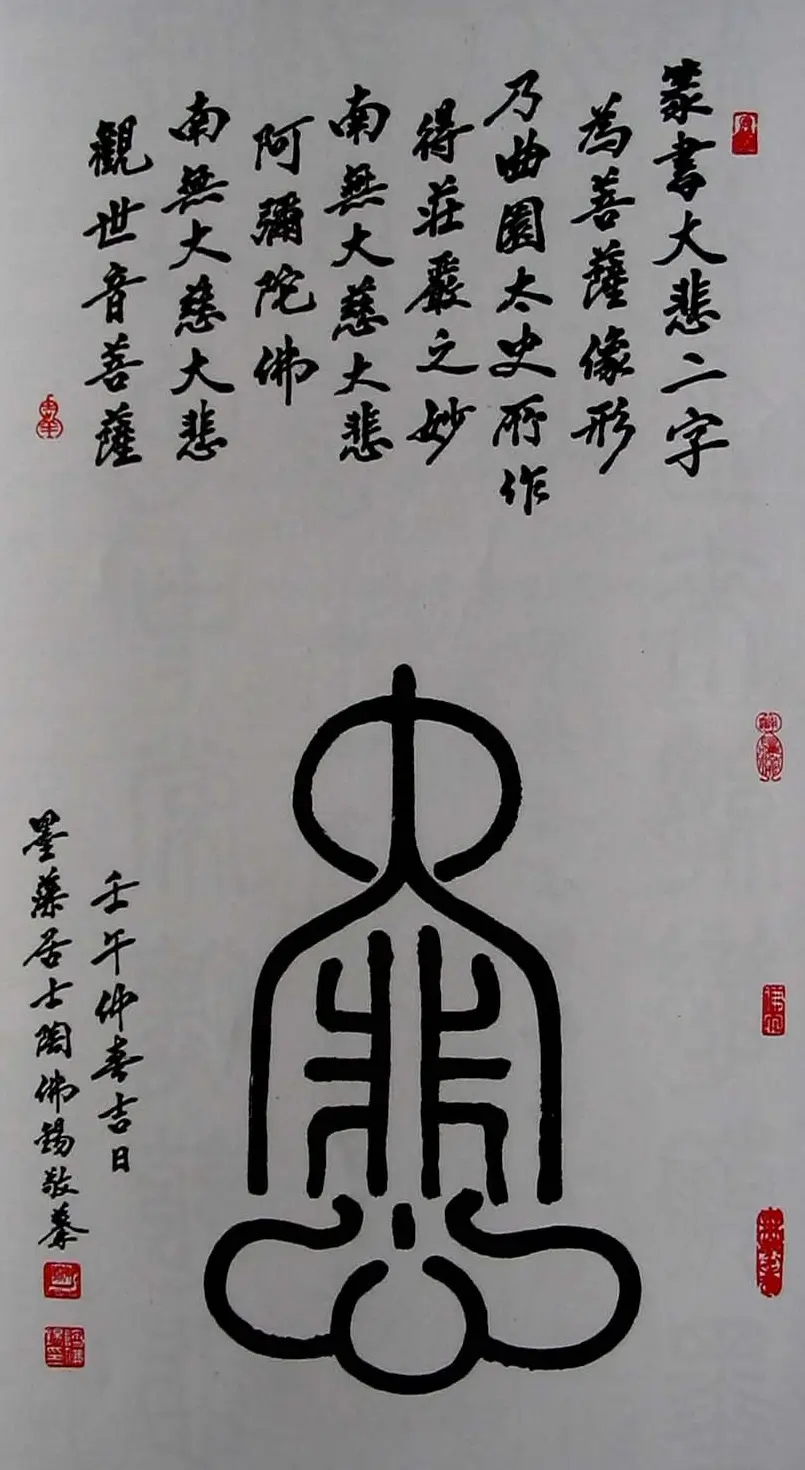 篆書大悲二字
為菩薩像形
乃曲園太史所作
得莊嚴之妙
南無大慈大悲
阿彌陀佛
南無大慈大悲
觀世音菩薩
大悲
壬午仲春吉日
墨藻居士陶佛錫敬摹